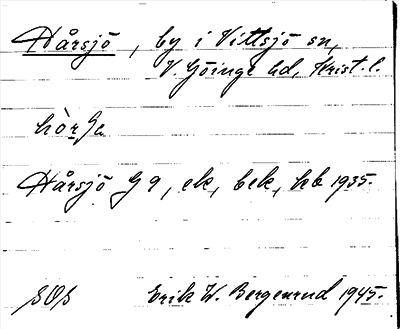 Hårsjö, by i Vittsjö sn,
V. Göinge hd, Krist. l.
Hårsjö G 9, ek, bek, hb 1935.
SOS Erik W. Bergenrud 1945.